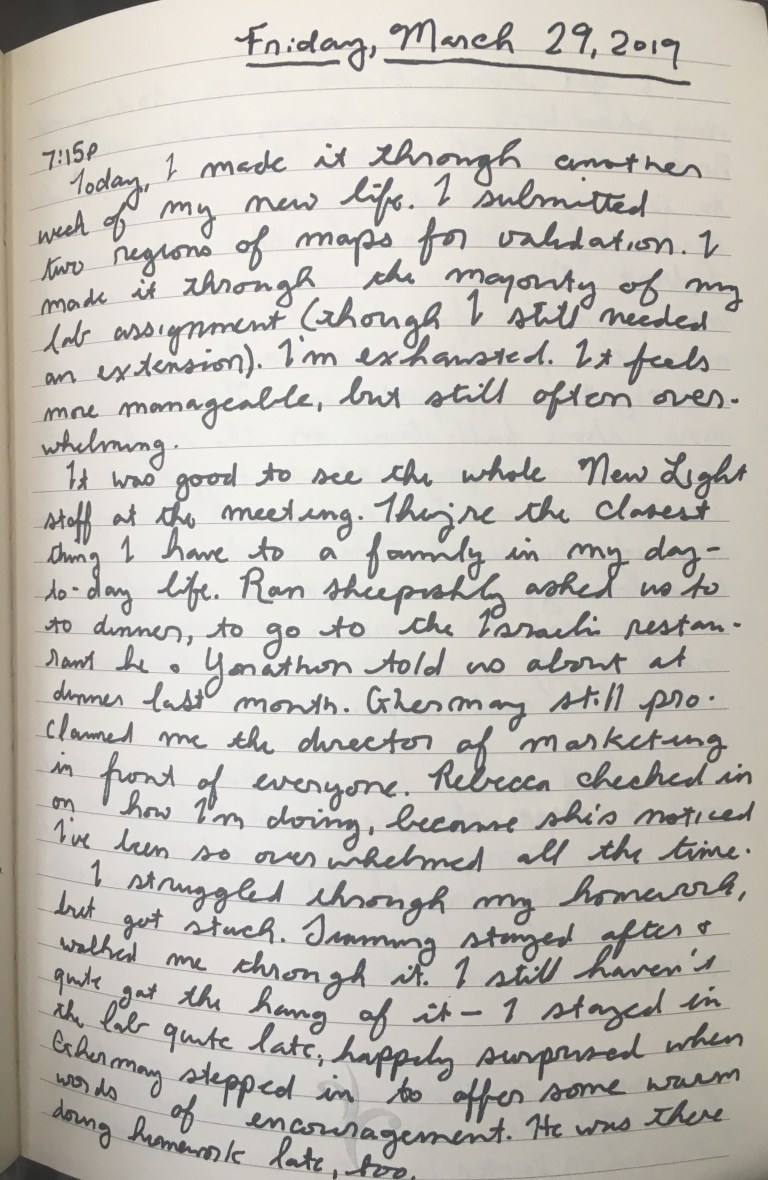 Friday, March 29, 2019
7:15P
Today, I made it through another
week of my new life. I submitted
two regions of maps for validation. I
made it through the majority of my
lab assignment (though I still needed
an extension). I'm exhausted. It feels
more manageable, but still often over-
whelming.
It was good to see the whole New Light
staff at the meeting. They're the closest
thing I have to a family in my day-
to-day life. Ran sheepishly asked us to
to dinner, to go to the Israeli restau-
rant he & Yonathon told us about at
dinner last month. Ghermay still pro-
claimed me the director of marketing
in front of everyone. Rebecca checked in
on how I'm doing, because she's noticed
I've been so overwhelmed all the time.
I struggled through my homework,
but got stuck. stayed after &
walked me through it. I still haven't
quite got the hang of it – I stayed in
the lab quite late, happily surprised when
Ghermay stepped in to offer some warm
words of encouragement. He was there
doing homework late, too.